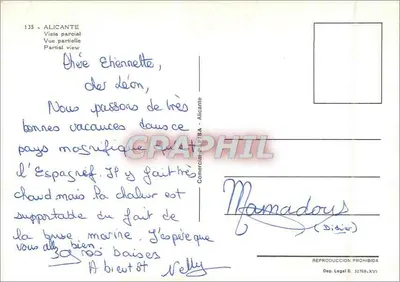 135 - ALICANTE
Vista parcial
Vue partielle
Partial view
Chère Etiennette,
cher Léon,
Nous passons de très
bonnes vacances dans ce
pays magnifique qu'est
l'Espagne. Il y fait très
chaud mais la chaleur est
supportable du fait de
la brise marine. J'espère que
vous allez bien.
Gros baises
A bientôt Nelly
Comercial - Alicante
CPAPHIL
Mamadous
(Didier)
REPRODUCCION PROHIBIDA